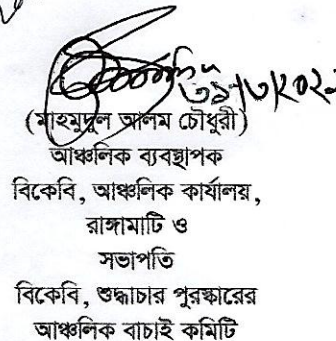 (মাহমুদুল আলম চৌধুরী)
আঞ্চলিক ব্যবস্থাপক
বিকেবি, আঞ্চলিক কার্যালয়,
রাঙ্গামাটি ও
সভাপতি
বিকেবি, শুদ্ধাচার পুরস্কারের
আঞ্চলিক বাচাই কমিটি